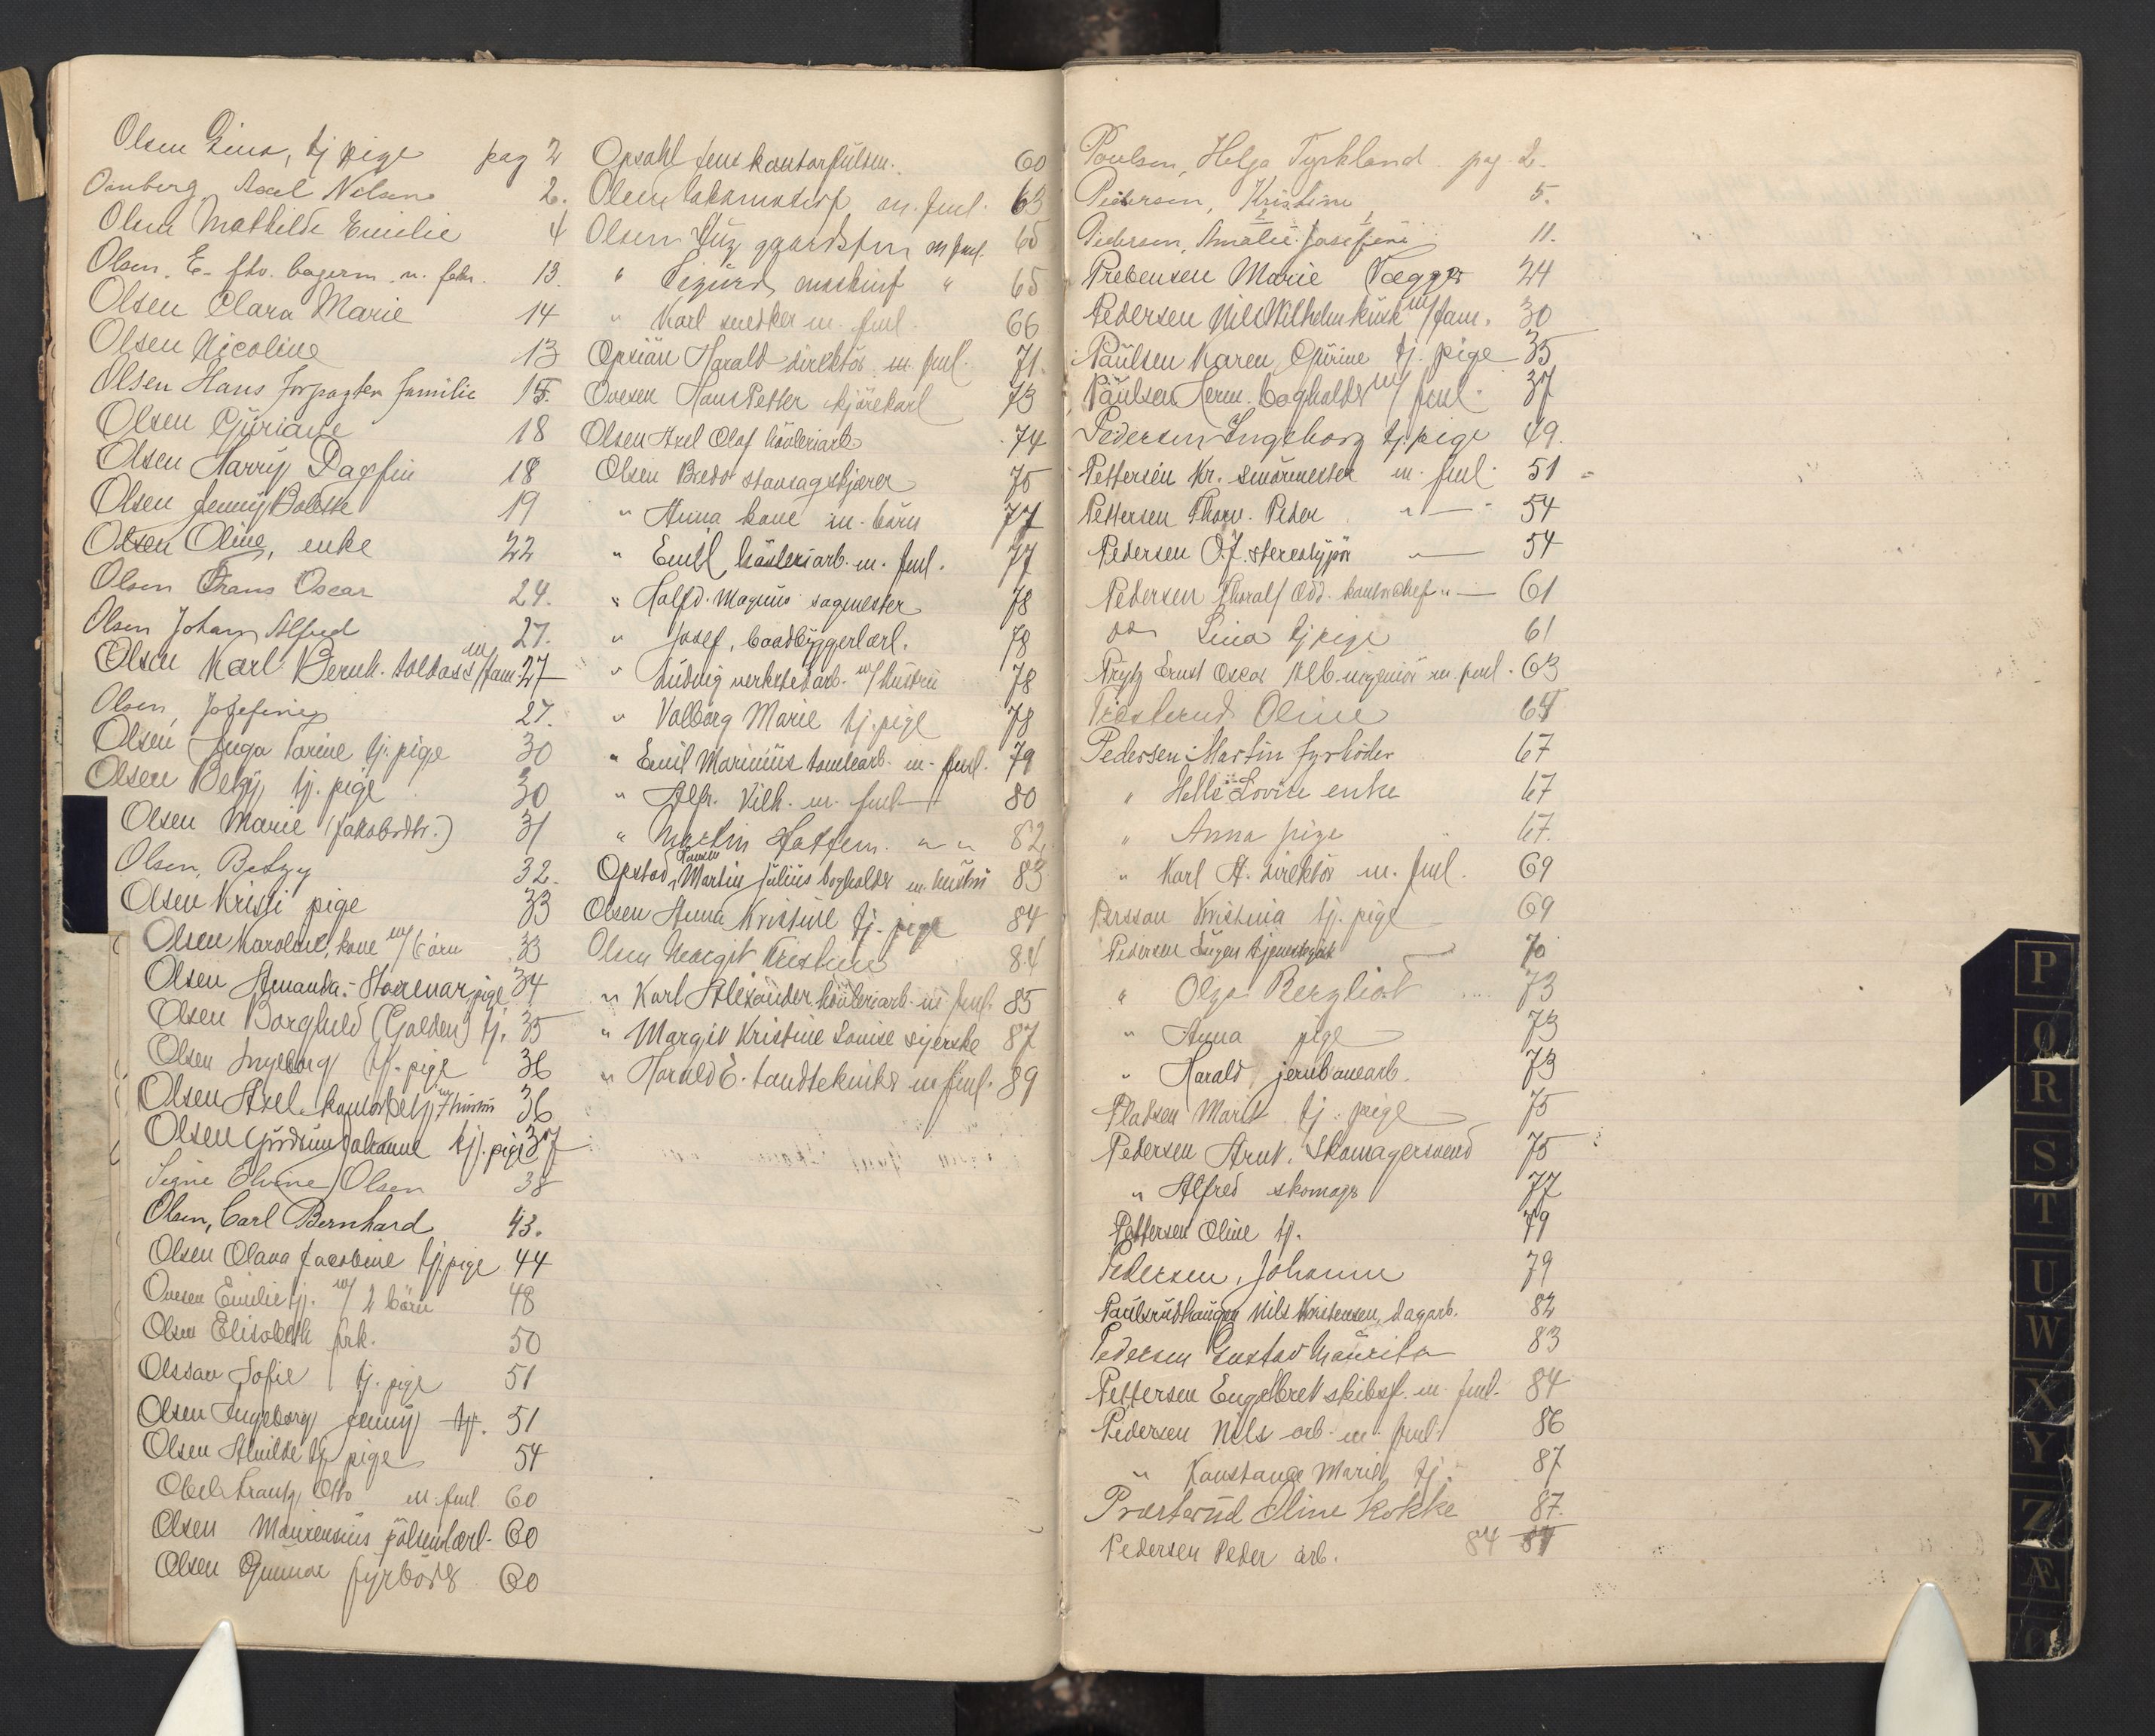 Olsen Gina, tj pige pag 2
Omberg, Axel Nelson 2.
Olsen Mathilde Emilie 4
Olsen. E. fhv. bagerm. m. fam. 13.
Olsen Clara Marie 14
Olsen Nicoline 13
Olsen Hans forpagter familie 15.
Olsen Guriane 18
Olsen Harry Dagfin 18
Olsen Jenny Bolette 19
Olsen Oline, enke 22
Olsen Frans Oscar 24.
Olsen Johan Alfred 27.
Olsen Karl Bernh. toldass m/fam. 27
Olsen, Josefine 27.
Olsen Inga Karine tj. pige 30
Olsen Betzy tj. pige 30
Olsen Marie (Jakobsdtr.) 31
Olsen, Betzy 32.
Olsen Kristi pige 33
Olsen Karoline, kone m/ börn 33
Olsen Amanda - pige 34
Olsen Borghild (Golden) tj. 35
Olsen Ingeborg tj. pige 36
Olsen Axel kontorbetj m/ hustru 36
Olsen Gudrun Johanne tj. pige 37
Signe Elvine Olsen 38
Olsen, Carl Bernhard 43.
Olsen Olava Jacobine tj. pige 44
Ovesen Emilie tj. m/ 2 börn 48
Olsen Elisabeth frk. 50
Olsson Sofie tj. pige 51
Olsen Ingeborg Jenny tj. 51
Olsen Almilde tj pige 54
Obel Frantz Otto m. fml. 60
Olsen Maurentius 60
Olsen Gunnar fyrböder 60
Opsahl Jens kontorfuldm. 60
Olsen lokomotivf m. fml. 63
Olsen gaardsbr m fml. 65
" Sigurd maskinist " 65
" Karl snedker m. fml. 66
Opsian Harald direktör m. fml. 71.
Ovesen Hans Petter kjörekarl 73
Olsen Axel Olaf hövleriarb 74
Olsen Bredo stavsagskjærer 75
" Anna kone m. börn 77
" Emil hövleriarb. m. fml. 77
" Halfd. Magnus sagmester 78
" Josef, baadbyggerlærl. 78
" Ludvig verkstedarb. m/ hustru 78
" Valborg Marie tj. pige 78
" Emil Marinius tomtearb. m. fml. 79
" Alfr. Vilh. m. fml. 80
" Martin Hattem. " " 82
Opstad, Hansen Martin Julius bogholder m. hustru 83
Olsen Anna Kristine tj. pige 84
Olsen Margit Kristine 84
" Karl Alexander hövleriarb. m fml. 85
" Margit Kristine Louise syerske 87
" Harald E. tandtekniker m fml. 89
Poulsen, Helga Tyrkland pag. 2.
Pedersen, Kristine 5.
Pedersen, Amalie Josefine 11.
Prebensen Marie Vægger 24
Pedersen Nils Wilhelm kusk m/ fam. 30
Paulsen Karen Gurine tj. pige 35
Paulsen Herm. bogholder m/ fml. 37
Pedersen Ingeborg tj. pige 49.
Pettersen Kr. murmester m. fml. 51
Pettersen Thorv. Peder " — 54
Pedersen O.J. stereotypör — 54
Pedersen Thoralf Odd. kontorchef " — 61
do Lina tj pige 61
Prytz Ernst Oscar Alb. ingeniör m. fml. 63
Oline 64
Pedersen Martin fyrböder 67
" Helle Lovise enke 67
" Anna pige 67.
" Karl A. direktör m. fml. 69
Persson Kristina tj. pige 69
Pedersen Sigrun tjenestepike 70
" Olga Bergliot 73
" Anna pige 73
" Harald jernbanearb. 73
Pladsen Marit tj. pige 75
Pedersen Arnt. Skomagersvend 75
" Alfred skomager 77
Pettersen Oline tj. 79
Pedersen, Johanne 79
Paulsrudhaugen Nils Kristensen, dagarb. 82
Pedersen Gustav Mauritz 83
Pettersen Engelbret skibsf. m. fml. 84
Pedersen Nils arb. m. fml. 86
" Konstanse Marie tj. 87
Præsterud Oline kokke 87.
Pedersen Peder arb. 84 87
P
Q
R
S
T
U
W
X
Y
Z
Æ